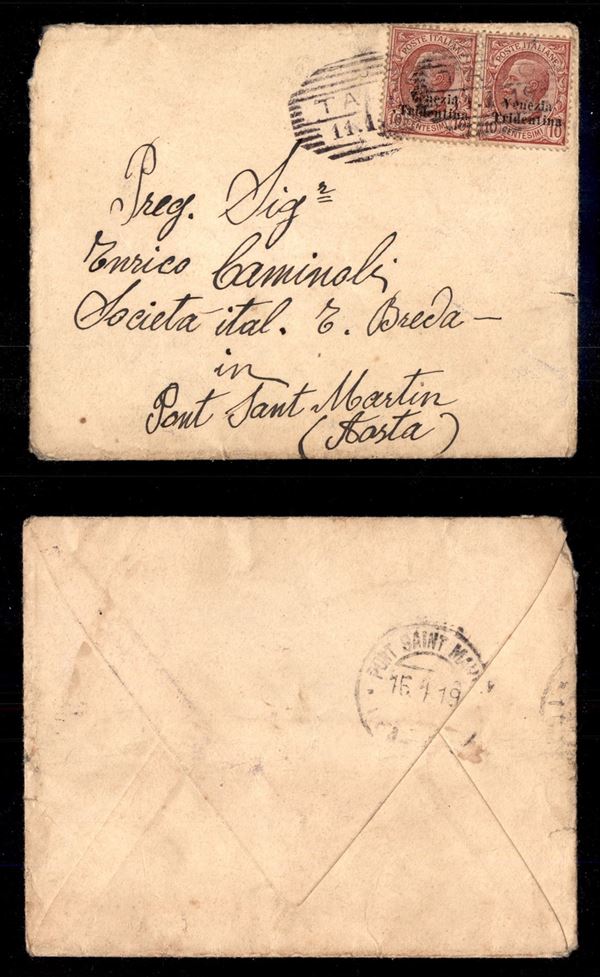 POSTE ITALIANE POSTE ITALIANE
Venezia Venezia
Tridentina Tridentina
10 CENTESIMI 10 10 CENTESIMI 10
TA
14.1
Preg. Sigr
Enrico Caminoli
Società ital. E. Breda —
in
Pont Sant Martin
(Aosta)
PONT SAINT MA
16 1 19